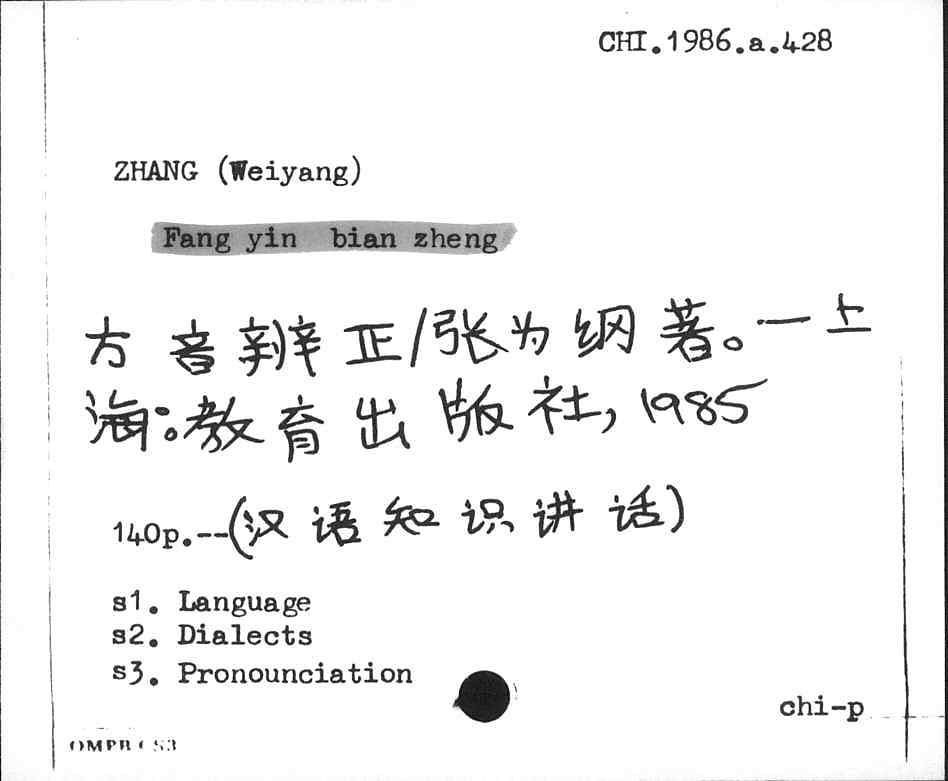 CHI.1986.a.428
ZHANG (Weiyang)
Fang yin bian zheng
方音辨正/张为纲著。一上
海:教育出版社,1985
140p.--(汉语知识讲话)
s1. Language
s2. Dialects
s3. Pronounciation
chi-p